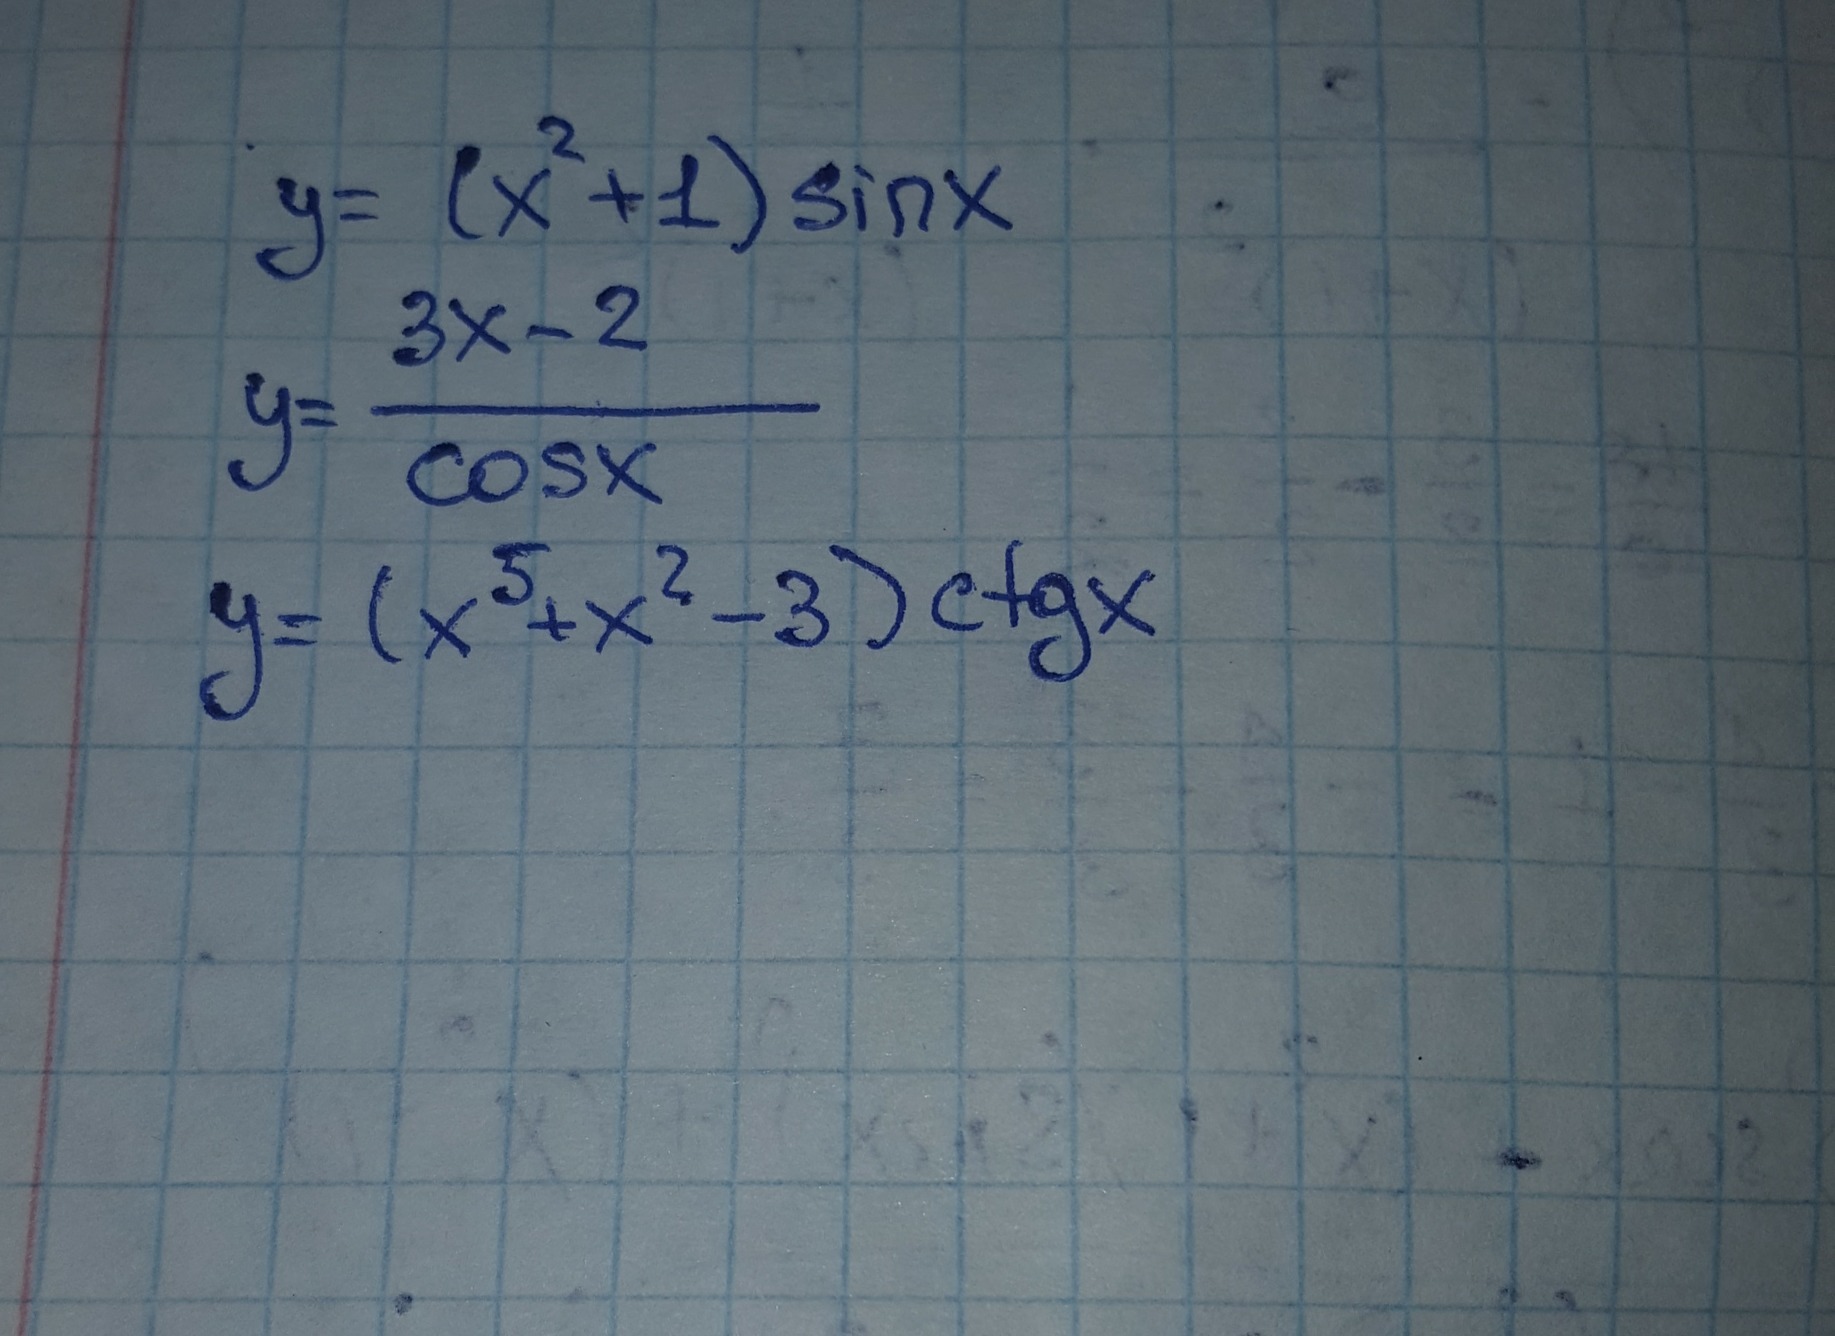 y = (x² + 1) sinx
y = 3x - 2 / cosx
y = (x⁵ + x² - 3) ctgx